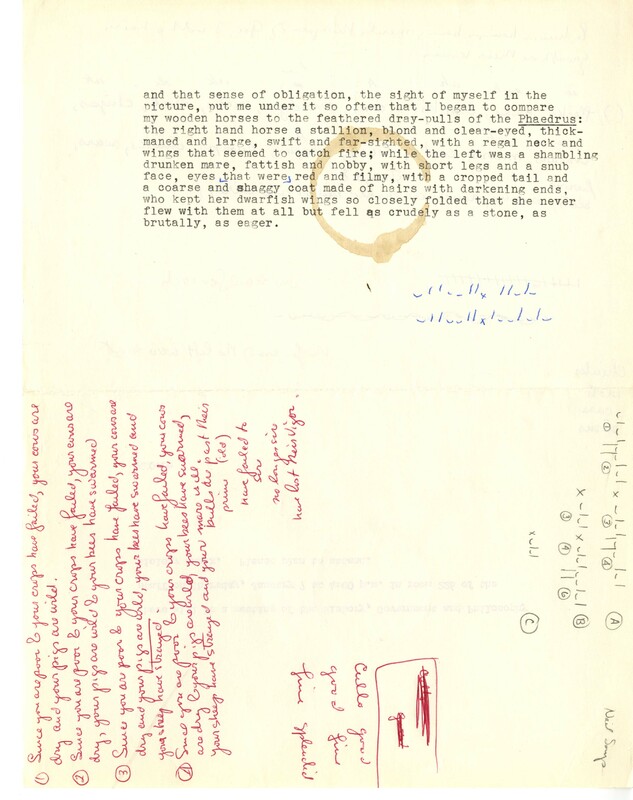 and that sense of obligation, the sight of myself in the
picture, put me under it so often that I began to compare
my wooden horses to the feathered dray-pulls of the Phaedrus:
the right hand horse a stallion, blond and clear-eyed, thick-
maned and large, swift and far-sighted, with a regal neck and
wings that seemed to catch fire; while the left was a shambling
drunken mare, fattish and nobby, with short legs and a snub
face, eyes that were red and filmy, with a cropped tail and
a coarse and shaggy coat made of hairs with darkening ends,
who kept her dwarfish wings so closely folded that she never
flew with them at all but fell as crudely as a stone, as
brutally, as eager.
① Since you are poor & your crops have failed, your cows are
dry and your pigs are wild.
② Since you are poor & your crops have failed, your cows are
dry, your pigs are wild & your bees have swarmed
③ Since you are poor & your crops have failed, your cows are
dry and your pigs are wild, your bees have swarmed and
your sheep have strayed.
④ Since you are poor & your crops have failed, your cows
are dry & your pigs are wild, your bees have swarmed,
your sheep have strayed and your mare is ill.
bulls are past their
prime (old)
have failed to
sire
no longer sire
have lost their vigor.
good
good fine
fine splendid
A
B
C